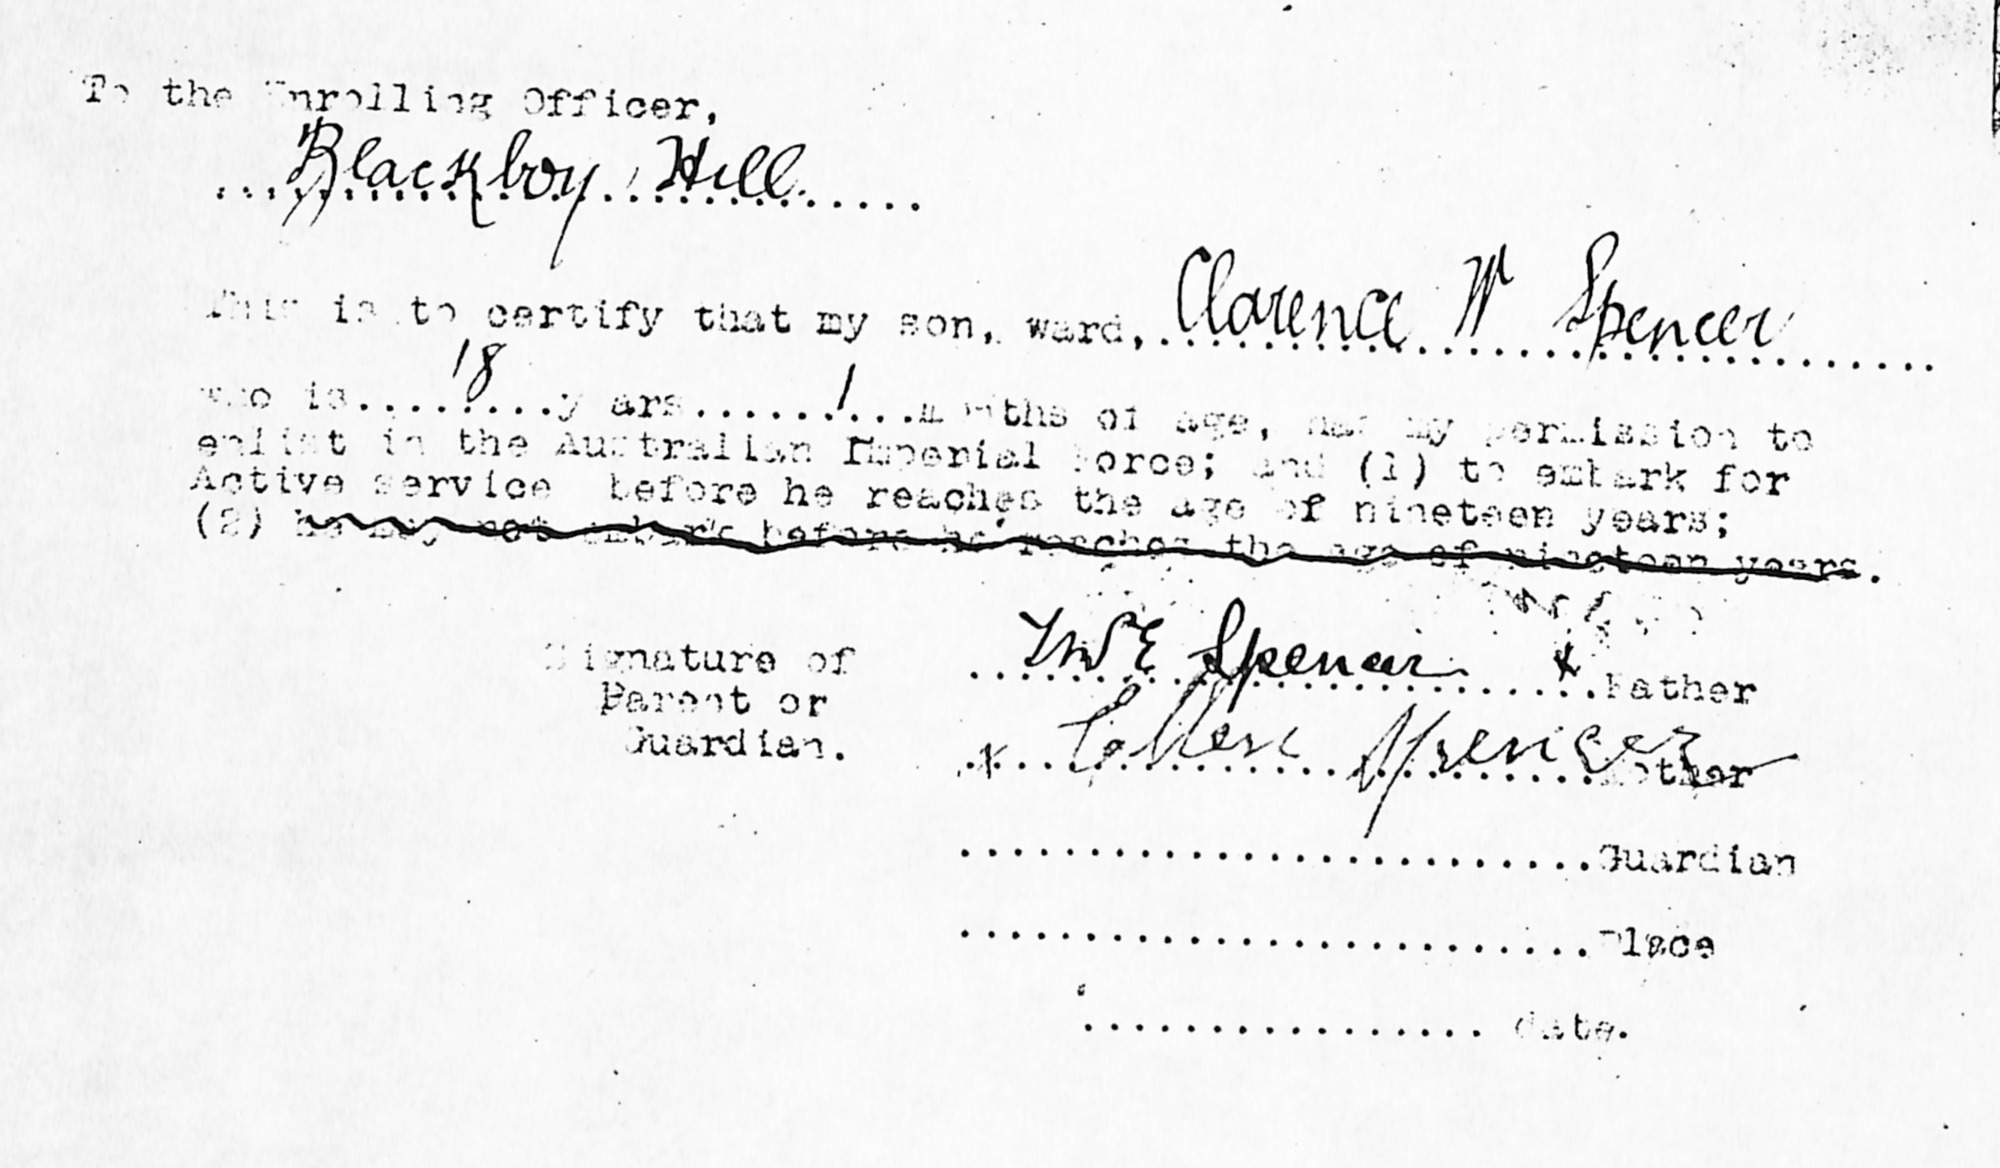 To the Enrolling Officer,
Blackboy Hill
This is to certify that my son, ward, Clarence W Spencer
who is 18 years 1 months of age, has my permission to
enlist in the Australian Imperial Force; and (1) to embark for
Active service before he reaches the age of nineteen years;
(2) he may not embark before he reaches the age of nineteen years.
Signature of
Parent or
Guardian.
Spencer x Father
x Spencer Mother
Guardian
Place
date.